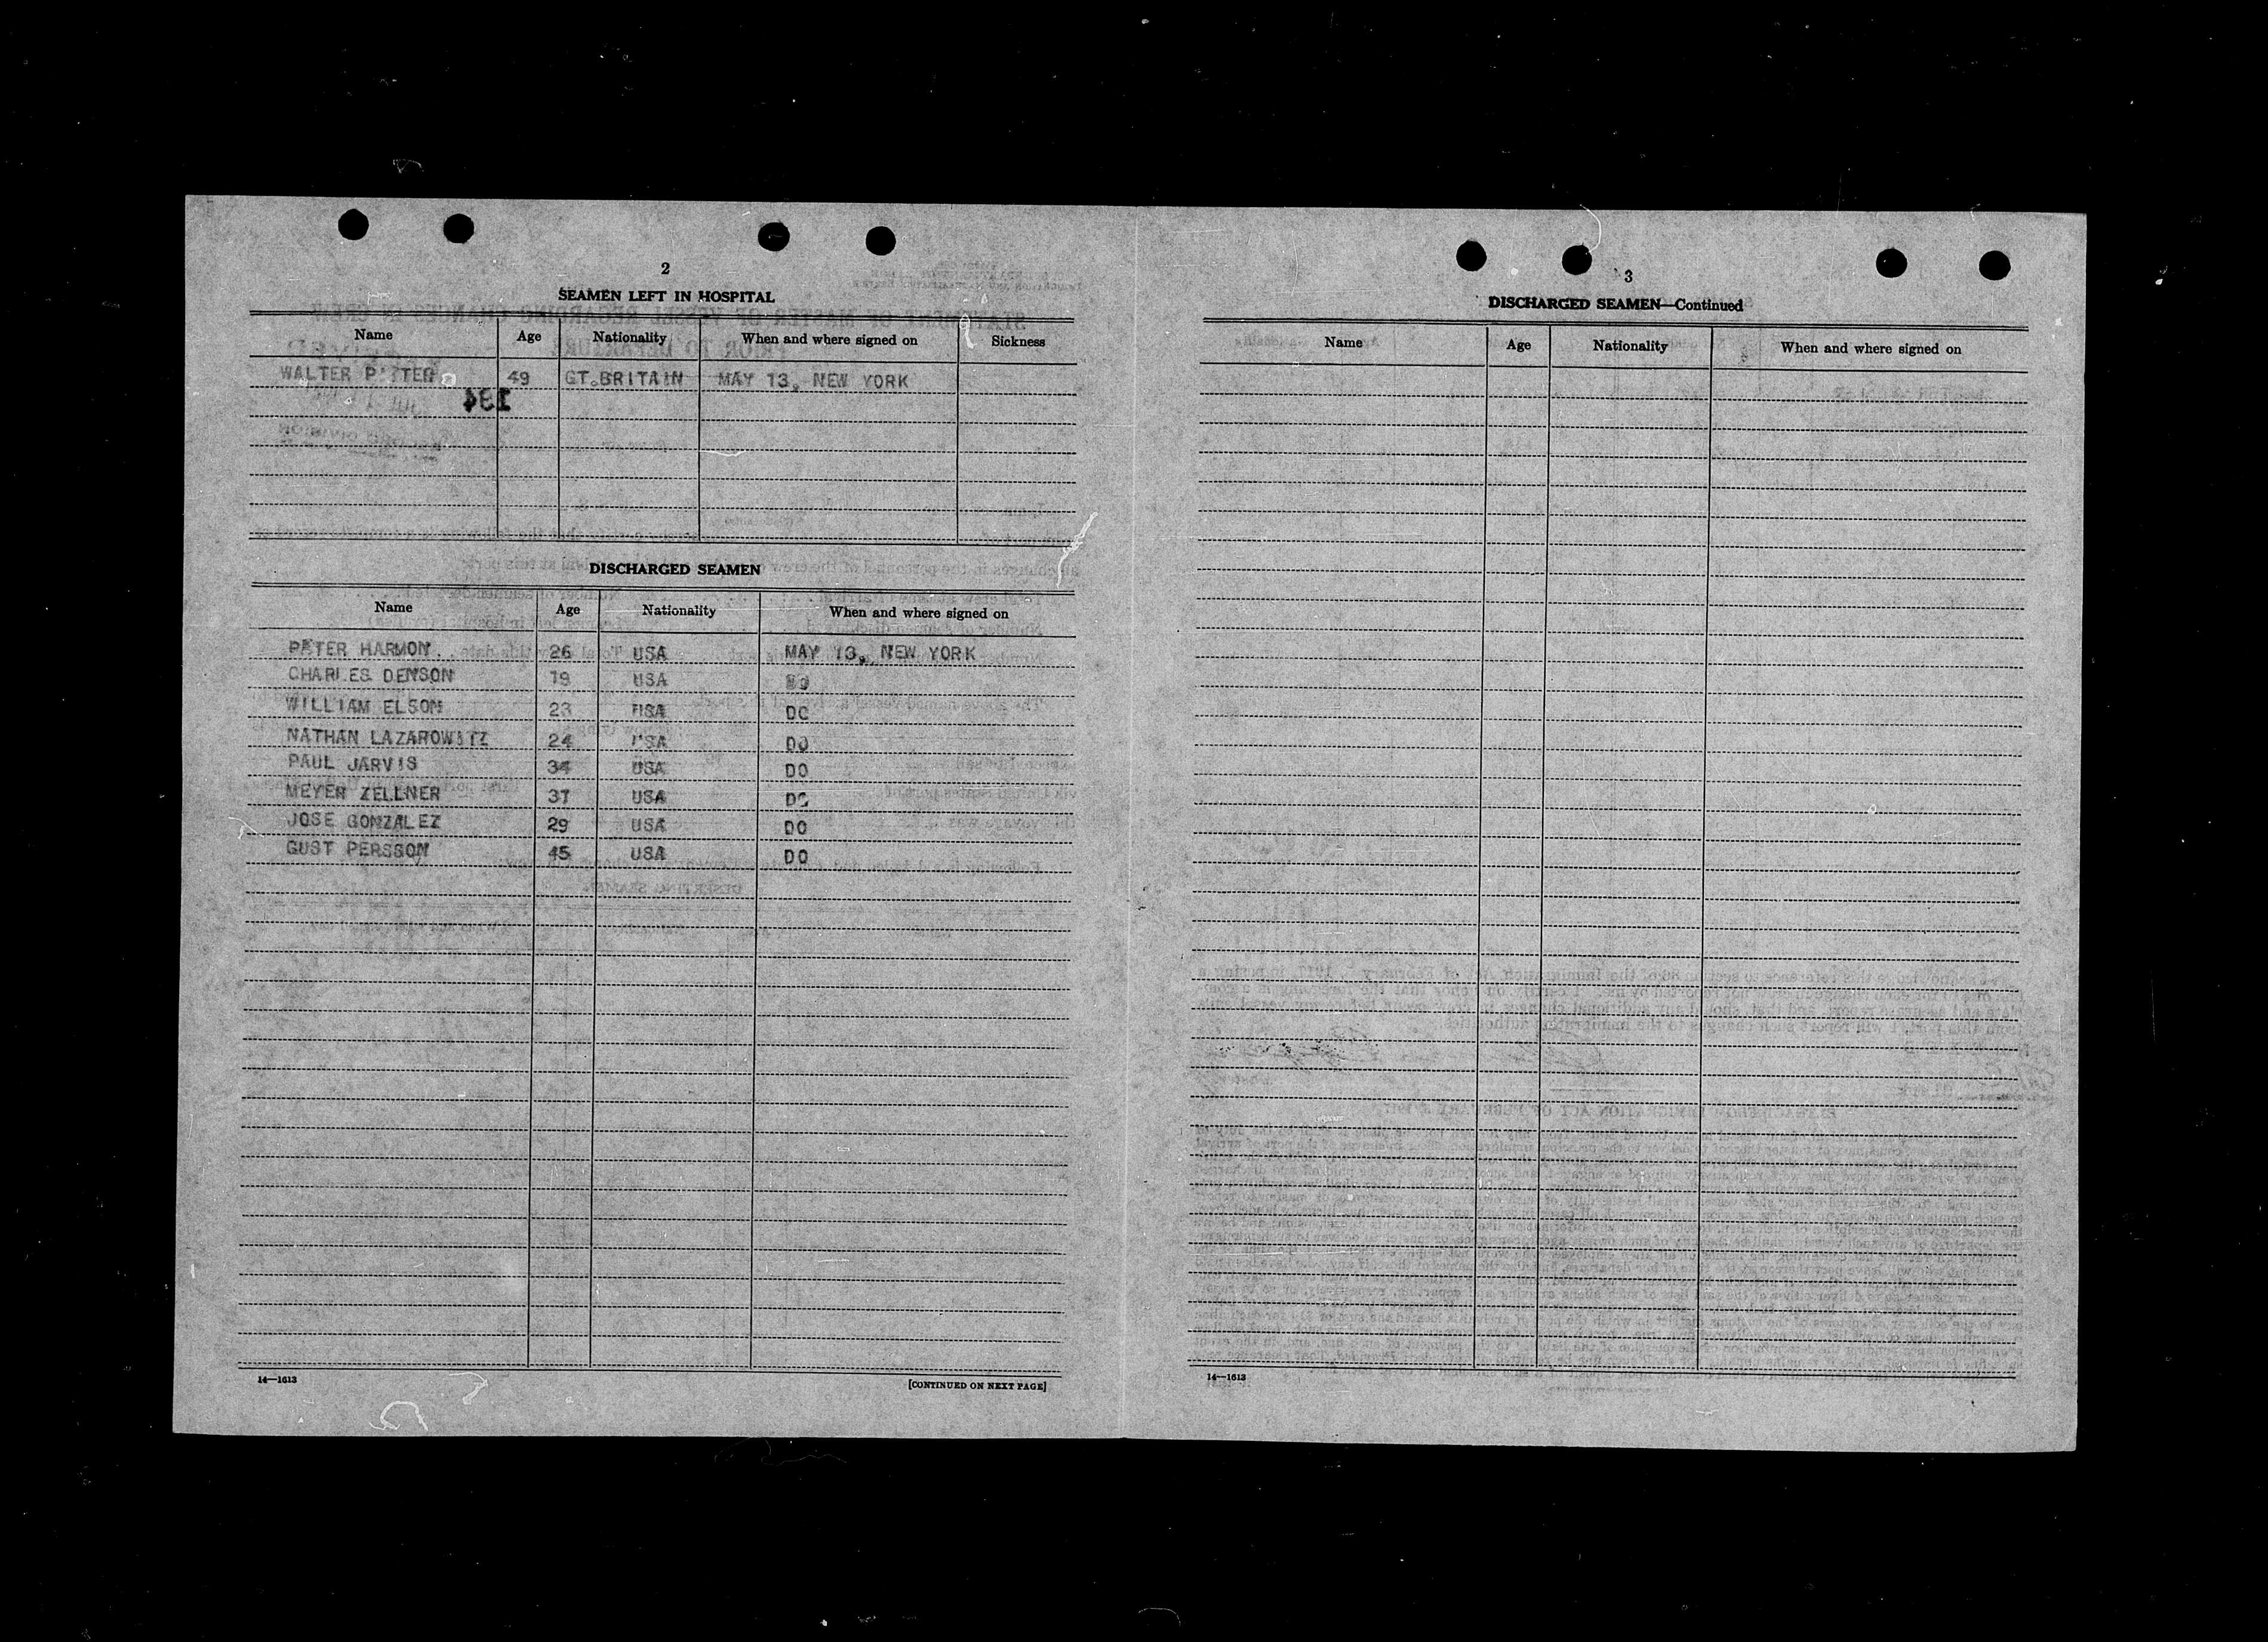 2
SEAMEN LEFT IN HOSPITAL
Name Age Nationality When and where signed on Sickness
WALTER 49 GT. BRITAIN MAY 13, NEW YORK
DISCHARGED SEAMEN
Name Age Nationality When and where signed on
PETER HARMON 26 USA MAY 13, NEW YORK
CHARLES DENSON 19 USA DO
WILLIAM ELSON 23 USA DO
NATHAN LAZAROWITZ 24 USA DO
PAUL JARVIS 34 USA DO
MEYER ZELLNER 37 USA DO
JOSE GONZALEZ 29 USA DO
GUST PERSSON 45 USA DO
14—1613 [CONTINUED ON NEXT PAGE]
3
DISCHARGED SEAMEN—Continued
Name Age Nationality When and where signed on
14—1613